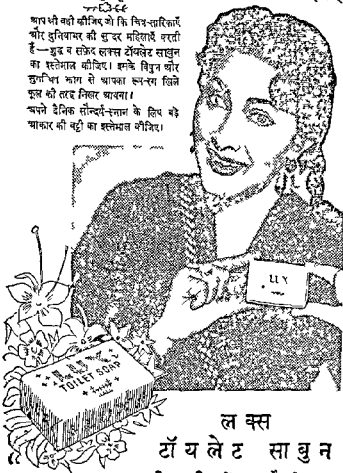 आप भी वही कीजिए जो कि चित्र-तारिकाएँ
और दुनियाभर की सुन्दर महिलाएँ करती
हैं — शुद्ध व सफ़ेद लक्स टॉयलेट साबुन
का इस्तेमाल कीजिए। इसके विपुल और
सुगन्धित झाग से आपका रूप-रंग खिले
फूल की तरह निखर आयगा।
अपने दैनिक सौन्दर्य-स्नान के लिए बड़े
आकार की बट्टी का इस्तेमाल कीजिए।
LUX
LUX
TOILET SOAP
लक्स
टॉयलेट साबुन